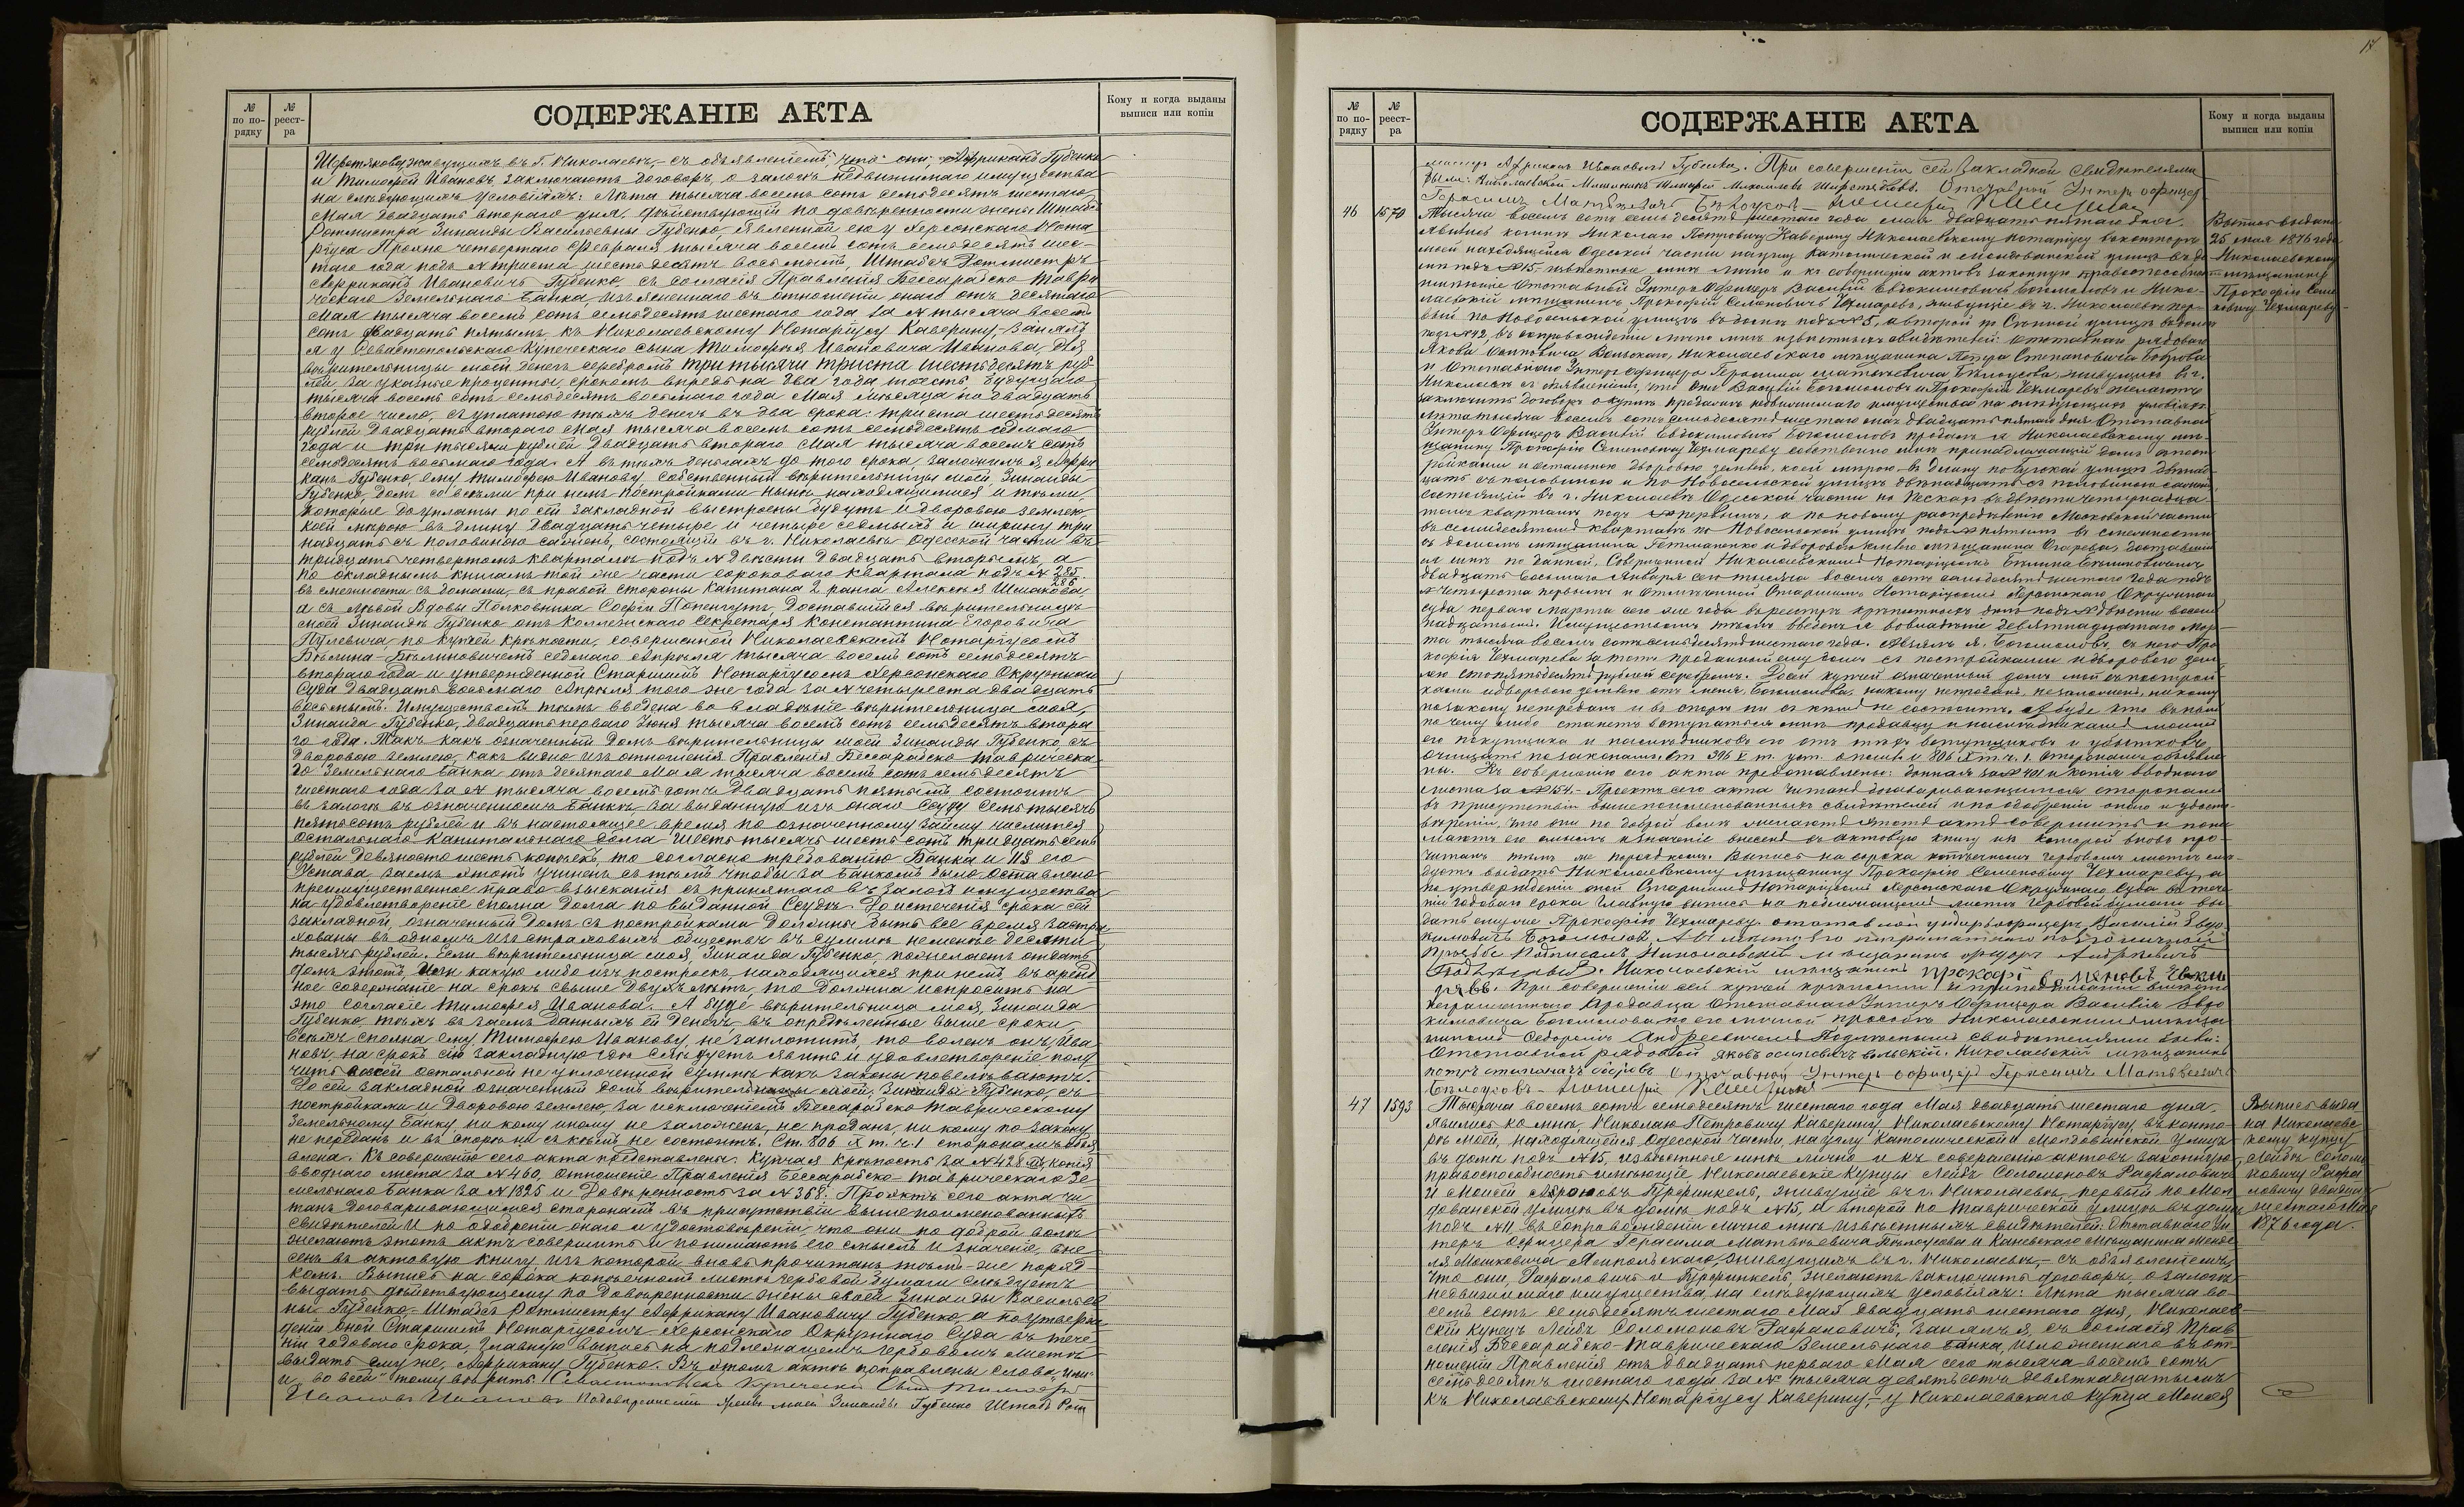 № по порядку
№ реестра
СОДЕРЖАНІЕ АКТА
Кому и когда выданы выписи или копіи
живущихъ въ г. Николаевѣ, съ объявленіемъ, что они, Африканъ Губенко
и Тимофей Ивановъ, заключаютъ договоръ о залогѣ недвижимаго имущества
на слѣдующихъ условіяхъ: Лѣта тысяча восемь сотъ семьдесятъ шестаго
Мая двадцать втораго дня, дѣйствующій по довѣренности жены Штабсъ
Ротмистра Зинаиды Васильевны Губенко, явленной ею у Херсонскаго Нота
ріуса четвертаго Февраля тысяча восемь сотъ семьдесятъ шес-
таго года подъ № триста шестьдесятъ восьмымъ, Штабсъ Ротмистръ
Африканъ Ивановичъ Губенко, съ согласія Правленія Бессарабско Таври
ческаго Земельнаго Банка, изъясненнаго въ отношеніи онаго отъ десятаго
Мая тысяча восемь сотъ семьдесятъ шестаго года за № тысяча восемь
сотъ двадцать пятымъ, къ Николаевскому Нотаріусу Каверину, занялъ
я у Севастопольскаго Купеческаго сына Тимофея Ивановича Иванова, для
вѣрительницы моей денегъ серебромъ три тысячи триста шестьдесятъ руб-
лей за указные проценты, срокомъ впредь на два года, то есть будущаго
тысяча восемь сотъ семьдесятъ восьмаго года Мая мѣсяца по двадцать
второе число, съ уплатою тѣхъ денегъ въ два срока: триста шестьдесятъ
рублей двадцать втораго Мая тысяча восемь сотъ семьдесятъ седьмаго
года и три тысячи рублей двадцать втораго Мая тысяча восемь сотъ
семьдесятъ восьмаго года. А въ тѣхъ деньгахъ до того срока заложилъ я, Афри
канъ Губенко, ему Тимофею Иванову собственный вѣрительницы моей Зинаиды
Губенко, домъ со всѣми при немъ постройками нынѣ находящимися и тѣми,
которые до уплаты по сей закладной выстроены будутъ и дворовою землею,
коей мѣрою въ длину двадцать четыре и четыре седьмыхъ и ширину три
надцать съ половиною саженъ, состоящій въ г. Николаевѣ Одесской части въ
тридцать четвертомъ кварталѣ подъ № двѣсти двадцать вторымъ, а
по окладнымъ книгамъ той же части сороковаго квартала подъ № 285/286
въ смежности съ домами, съ правой стороны Капитана 2 ранга Алексѣя Шмакова
а съ лѣвой Вдовы Полковника Софіи Попенгутъ, доставшійся вѣрительницѣ
моей Зинаидѣ Губенко отъ Коллежскаго Секретаря Константина Егоровича
Пулевича, по купчей крѣпости, совершенной Николаевскимъ Нотаріусомъ
Бѣлина-Бѣлиновичемъ седьмаго Апрѣля тысяча восемь сотъ семьдесятъ
втораго года и утвержденной Старшимъ Нотаріусомъ Херсонскаго Окружнаго
Суда двадцать восьмаго Апрѣля того же года за № четыреста двадцать
восьмымъ. Имуществомъ тѣмъ введена во владѣніе вѣрительница моя,
Зинаида Губенко, двадцать перваго Іюня тысяча восемь сотъ семьдесятъ втора
го года. Такъ какъ означенный домъ вѣрительницы моей Зинаиды Губенко, съ
дворовою землею, какъ видно изъ отношенія Правленія Бессарабско-Таврическа
го Земельнаго Банка отъ десятаго Мая тысяча восемь сотъ семьдесятъ
шестаго года за № тысяча восемь сотъ двадцать пятымъ состоитъ
въ залогѣ въ означенномъ Банкѣ за выданную изъ онаго ссуду семь тысячъ
пятьсотъ рублей и въ настоящее время по означенному займу числится
остальнаго капитальнаго долга шесть тысячъ шесть сотъ тридцать семь
рублей девяносто шесть копѣекъ, то согласно требованію Банка и его
Устава, заемъ этотъ учиненъ съ тѣмъ чтобы за Банкомъ было оставлено
преимущественное право взысканія съ принятаго въ залогъ имущества
на удовлетвореніе сполна долга по выданной ссудѣ. До истеченія срока сей
закладной, означенный домъ съ постройками должны быть все время застра
хованы въ одномъ изъ страховыхъ обществъ въ суммѣ не менѣе десяти
тысячъ рублей. Если вѣрительница моя, Зинаида Губенко, пожелаетъ отдать
домъ этотъ, или какую либо изъ построекъ, находящихся при немъ, въ аренд
ное содержаніе на срокъ свыше двухъ лѣтъ, то должна испросить на
это согласіе Тимофея Иванова. А буде вѣрительница моя, Зинаида
Губенко, тѣхъ въ заемъ данныхъ ей денегъ въ опредѣленные выше сроки,
всѣхъ сполна ему, Тимофею Иванову, не заплотитъ, то воленъ онъ, Ива
новъ, на срокъ сію закладную гдѣ слѣдуетъ явить и удовлетвореніе полу
чить всей остальной не уплоченной суммы какъ законы повелѣваютъ.
До сей закладной означенный домъ вѣрительницы моей, Зинаиды Губенко, съ
постройками и дворовою землею, за исключеніемъ Бессарабско Таврическому
Земельному Банку, ни кому иному не заложенъ, не проданъ, ни кому по закону
не переданъ и въ спорѣ ни съ кѣмъ не состоитъ. Ст. 806 X т. ч. 1 сторонамъ объяв
влена. Къ совершенію сего акта представлены: Купчая крѣпость за № 428, копія
вводнаго листа за № 460, отношеніе Правленія Бессарабско-Таврическаго Зе
мельнаго Банка за № 1825 и Довѣренность за № 368. Проэктъ сего акта чи
танъ договаривающимся сторонамъ въ присутствіи вышепоименованныхъ
свидѣтелей и по одобреніи онаго и удостовѣреніи, что они по доброй волѣ
желаютъ этотъ актъ совершить и понимаютъ его смыслъ и значеніе, вне
сенъ въ актовую книгу, изъ которой вновь прочитанъ тѣмъ же поряд
комъ. Выпись на сорока копѣечномъ листѣ гербовой бумаги слѣдуетъ
выдать дѣйствующему по довѣренности жены своей Зинаиды Васильев
ны Губенко, Штабсъ Ротмистру Африкану Ивановичу Губенко, а по утверж
деніи оной Старшимъ Нотаріусомъ Херсонскаго Окружнаго Суда въ тече
ніи годоваго срока, главную выпись на надлежащемъ гербовомъ листѣ
выдать ему же, Африкану Губенко. Въ этомъ актѣ поправлены слова „или“
и „во всей“ тому вѣрить. Севастопольскій Купеческій Сынъ Тимофей
Ивановъ Ивановъ По довѣренности жены моей Зинаиды Губенко Штабсъ Рот
17
№ по порядку
№ реестра
СОДЕРЖАНІЕ АКТА
Кому и когда выданы выписи или копіи
мистръ Африканъ Ивановичъ Губенко. При совершеніи сей закладной свидѣтелями
были: Николаевскій Мѣщанинъ Отставной Унтеръ офицеръ
Герасимъ Матвѣевичъ Бѣлоусовъ
46 1570 Тысяча восемь сотъ семьдесятъ шестаго года мая двадцать пятаго дня
явились ко мнѣ Николаю Петровичу Каверину Николаевскому нотаріусу въ контору
мою находящейся Одесской части на углу Католической и Молдованской улицъ въ до
мѣ подъ № 15 извѣстные мнѣ лично и къ совершенію актовъ законную правоспособность
имѣющіе Отставной Унтеръ-Офицеръ Василій Евдокимовичъ Богомоловъ и Нико-
лаевскій мѣщанинъ Прокофій Семеновичъ Чехмаревъ, живущіе въ г. Николаевѣ пер-
вый по Новосельской улицѣ въ домѣ подъ № 5, а второй по Сѣнной улицѣ въ домѣ
подъ № 42, въ сопровожденіи лично мнѣ извѣстныхъ свидѣтелей: отставнаго рядоваго
Якова Осиповича Вольскаго, Николаевскаго мѣщанина Петра Степановича Боброва
и Отставнаго Унтеръ Офицера Герасима Матвѣевича Бѣлоусова, живущихъ въ г.
Николаевѣ съ объявленіемъ, что они Василій Богомоловъ и Прокофій Чехмаревъ желаютъ
заключить договоръ о куплѣ продажѣ недвижимаго имущества на слѣдующихъ условіяхъ:
Лѣта тысяча восемь сотъ семьдесятъ шестаго мая двадцать пятаго дня Отставной
Унтеръ Офицеръ Василій Евдокимовичъ Богомоловъ продалъ я Николаевскому мѣ-
щанину Прокофію Семеновичу Чехмареву собственно мнѣ принадлежащій домъ съ пост
ройками и остальною дворовою землею, коей мѣрою въ длину по улицѣ двѣнад
цать съ половиною и по Новосельской улицѣ двѣнадцать съ половиною саженъ,
состоящій въ г. Николаевѣ Одесской части на Пескахъ въ двѣсти четырнадца
томъ кварталѣ подъ № первымъ, а по новому распредѣленію Московской части
въ семидесятомъ кварталѣ по Новосельской улицѣ подъ № пятымъ въ смежности
съ домомъ мѣщанина Гетманенко и дворовою землею мѣщанина Огарева, доставшій
ся мнѣ по данной, совершенной Николаевскимъ Нотаріусомъ Бѣлина Бѣлиновичемъ
двадцать восьмаго Января сего тысяча восемь сотъ семьдесятъ шестаго года подъ
№ четыреста первымъ и отмѣченной Старшимъ Нотаріусомъ Херсонскаго Окружнаго
суда перваго Марта сего же года въ реестрѣ крѣпостныхъ дѣлъ подъ № двѣсти восем
надцатымъ. Имуществомъ тѣмъ введенъ я во владѣніе девятнадцатаго Мар
та тысяча восемь сотъ семьдесятъ шестаго года. Взялъ я, Богомоловъ, съ него Про
кофія Чехмарева за тотъ проданный ему домъ съ постройками и дворовою зем
лею сто пятьдесятъ рублей серебромъ. До сей купчей означенный домъ мой съ построй
ками и дворовою землею отъ меня, Богомолова, никому не проданъ, не заложенъ, никому
по закону не переданъ и въ спорѣ ни съ кѣмъ не состоитъ. А буде кто въ него
по чему либо станетъ вступаться мнѣ продавцу и наслѣдникамъ моимъ
его покупщика и наслѣдниковъ его отъ тѣхъ вступщиковъ и убытковъ
очищать по законамъ. Ст. и 806 X т. ч. 1. сторонамъ объявле
ны. Къ совершенію сего акта представлены: данная за № 401 и копія вводнаго
листа за № 154. Проэктъ сего акта читанъ договаривающимся сторонамъ
въ присутствіи вышепоименованныхъ свидѣтелей и по одобреніи онаго и удосто-
вѣреніи, что они по доброй волѣ желаютъ этотъ актъ совершить и пони
маютъ его смыслъ и значеніе внесенъ въ актовую книгу изъ которой вновь про-
читанъ тѣмъ же порядкомъ. Выпись на сорока копѣечномъ гербовомъ листѣ слѣ-
дуетъ выдать Николаевскому мѣщанину Прокофію Семеновичу Чехмареву, а
по утвержденіи оной Старшимъ Нотаріусомъ Херсонскаго Окружнаго Суда въ тече
ніи годоваго срока главную выпись на надлежащемъ листѣ гербовой бумаги вы
дать ему же Прокофію Чехмареву. отставной ундеръ офицеръ Василій Евдо
кимовичъ Богомоловъ, А вмѣсто его неграмотнаго по его личной
просьбѣ подписалъ Николаевскій мѣщанинъ Андреевичъ
Николаевскій мѣщанинъ прокофі
При совершеніи сей купчей крѣпости и при подписаніи вмѣсто
неграмотнаго Продавца Отставнаго Унтеръ Офицера Василія Евдо
кимовича Богомолова по его личной просьбѣ Николаевскимъ мѣща
ниномъ Ѳедоромъ Андреевичемъ свидѣтелями были:
Отставной рядовой яковъ осиповичъ вольскій. Николаевскій мѣщанинъ
петръ степановъ бобровъ Отставной Унтеръ офицеръ Герасимъ Матвѣевичъ
Бѣлоусовъ
Выпись выдана
25 мая 1876 года
Николаевскому
мѣщанину
Прокофію Семе
новичу Чехмареву
47 1593 Тысяча восемь сотъ семьдесятъ шестаго года Мая двадцать шестаго дня,
явились ко мнѣ, Николаю Петровичу Каверину, Николаевскому Нотаріусу, въ конто-
ру мою, находящейся Одесской части, на углу Католической и Молдованской улицъ
въ домѣ подъ № 15, извѣстные мнѣ лично и къ совершенію актовъ законную
правоспособность имѣющіе Николаевскіе Купцы Лейбъ Соломоновъ Рафаловичъ
и Моисей Ароновъ Гурфинкель, живущіе въ г. Николаевѣ, первый по Мол
дованской улицѣ въ домѣ подъ № 15, а второй по Таврической улицѣ въ домѣ
подъ № 11 въ сопровожденіи лично мнѣ извѣстныхъ свидѣтелей: Отставнаго Ун
теръ Офицера Герасима Матвѣевича Бѣлоусова и Каневскаго Мѣщанина Менде
ля Мошковича Ямпольскаго, живущихъ въ г. Николаевѣ, съ объявленіемъ,
что они, Рафаловичъ и Гурфинкель, желаютъ заключить договоръ о залогѣ
недвижимаго имущества, на слѣдующихъ условіяхъ: Лѣта тысяча во-
семь сотъ семьдесятъ шестаго Мая двадцать шестаго дня, Николаев
скій Купецъ Лейбъ Соломоновъ Рафаловичъ, занялъ я, съ согласія Прав
ленія Бессарабско-Таврическаго Земельнаго Банка, изложеннаго въ от
ношеніи Правленія отъ двадцать перваго Мая сего тысяча восемь сотъ
семьдесятъ шестаго года за № тысяча девятьсотъ девятнадцатымъ
къ Николаевскому Нотаріусу Каверину, у Николаевскаго Купца Моисея
Выпись выда
на Николаевс
кому купцу
Лейбѣ Соломо
новичу Рафа
ловичу двадцать
шестаго Мая
1876 года.